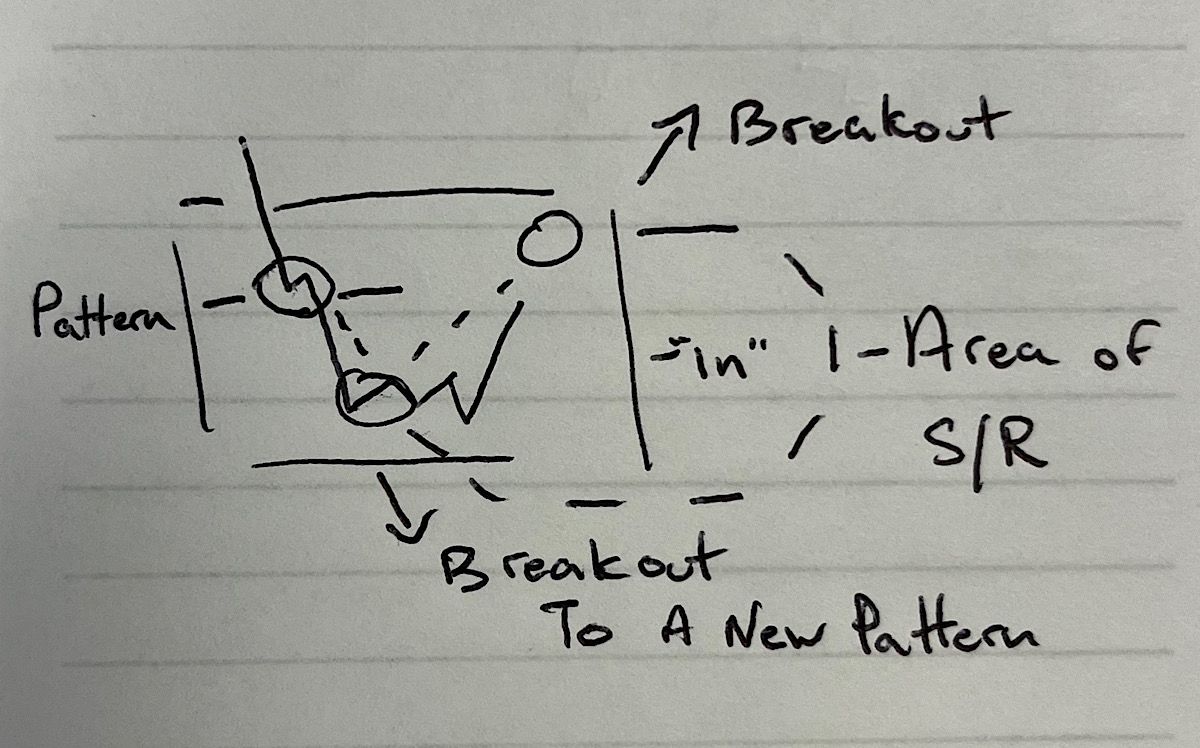 Breakout
Pattern
-"in"
1-Area of
S/R
Breakout
To A New Pattern